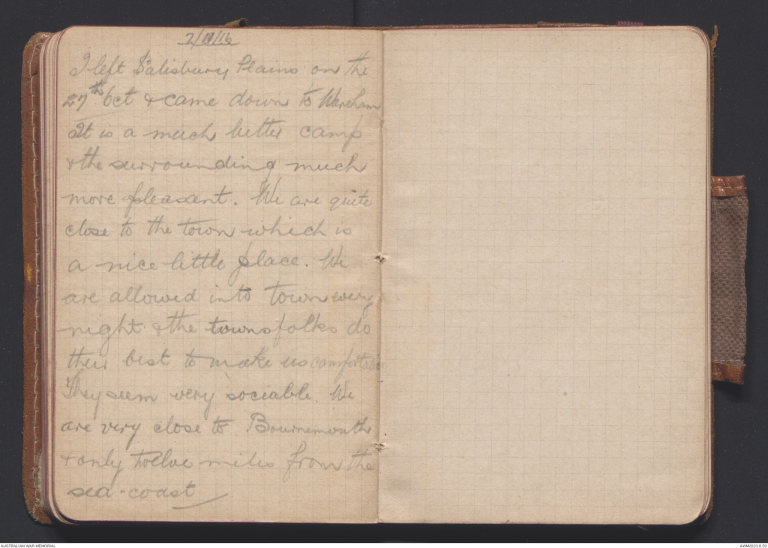 2/11/16
I left Salisbury Plains on the
27th Oct & came down to Wareham
It is a much better camp
& the surrounding much
more pleasant. We are quite
close to the town which is
a nice little place. We
are allowed into town every
night & the townsfolks do
their best to make us comfortable
They seem very sociable. We
are very close to Bournemouth
& only twelve miles from the
sea-coast
AUSTRALIAN WAR MEMORIAL